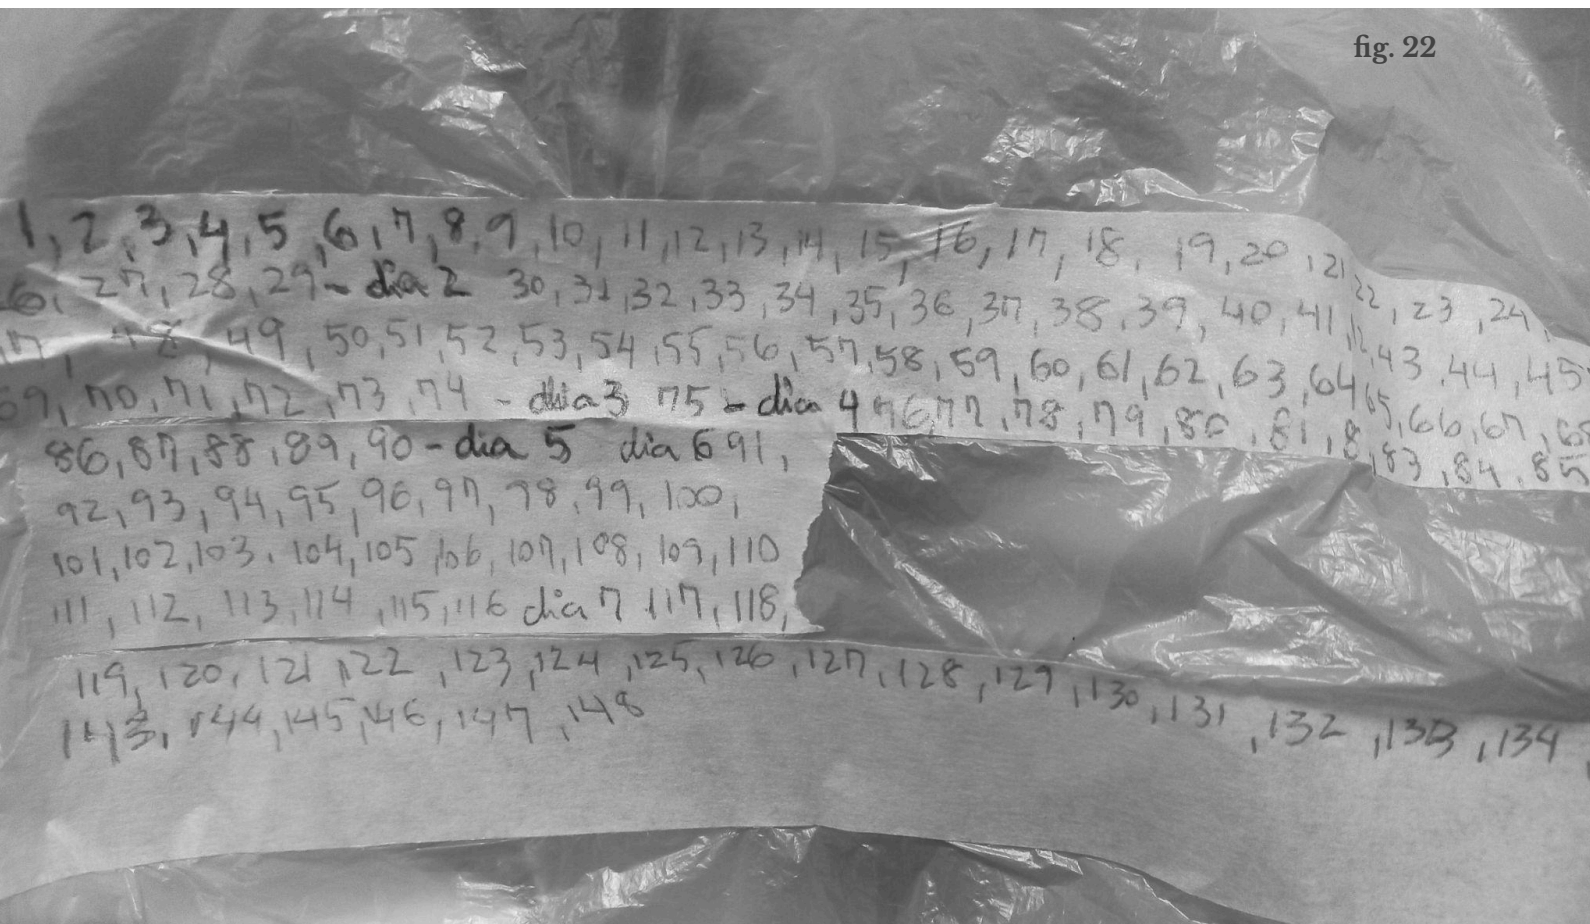 fig. 22
1, 2, 3, 4, 5, 6, 7, 8, 9, 10, 11, 12, 13, 14, 15, 16, 17, 18, 19, 20, 21, 22, 23, 24,
26, 27, 28, 29 - dia 2 30, 31, 32, 33, 34, 35, 36, 37, 38, 39, 40, 41, 42, 43, 44, 45
47, 48, 49, 50, 51, 52, 53, 54, 55, 56, 57, 58, 59, 60, 61, 62, 63, 64, 65, 66, 67, 68
69, 70, 71, 72, 73, 74 - dia 3 75 - dia 4 76, 77, 78, 79, 80, 81, 8, 83, 84, 85
86, 87, 88, 89, 90 - dia 5 dia 6 91,
92, 93, 94, 95, 96, 97, 98, 99, 100,
101, 102, 103, 104, 105, 106, 107, 108, 109, 110
111, 112, 113, 114, 115, 116 dia 7 117, 118,
119, 120, 121, 122, 123, 124, 125, 126, 127, 128, 129, 130, 131, 132, 133, 134
143, 144, 145, 146, 147, 148